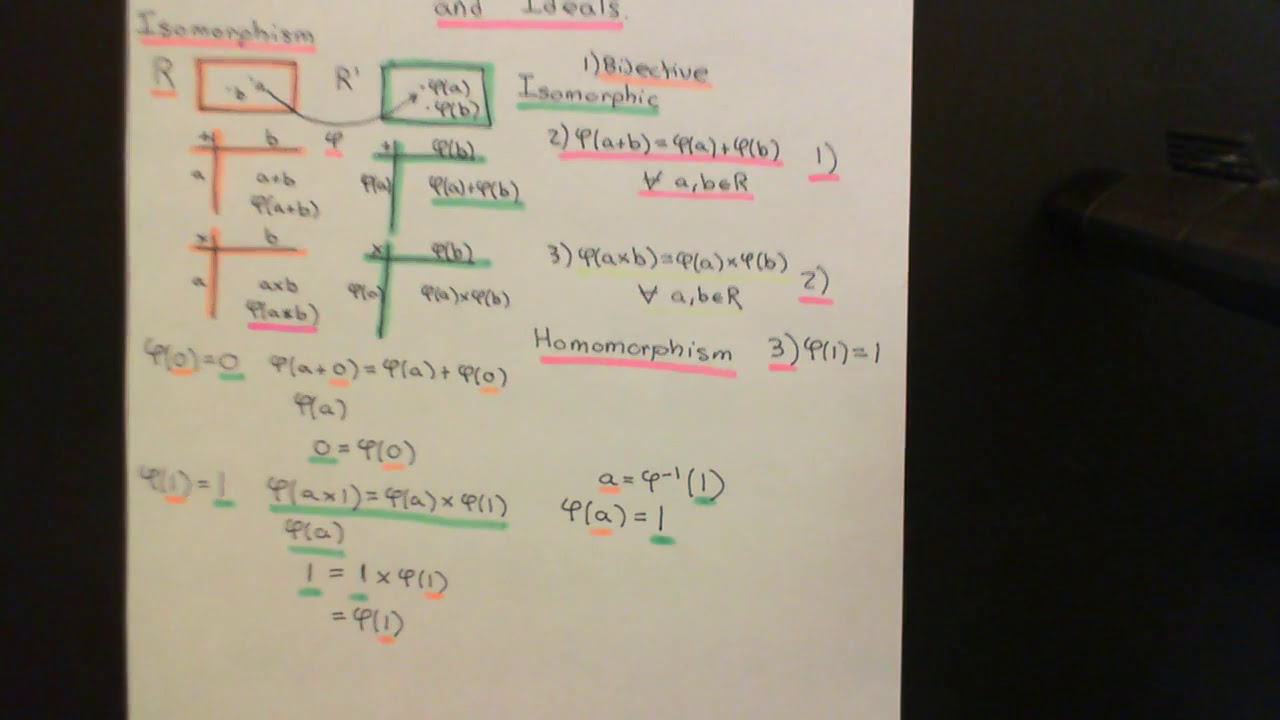 and Ideals.
Isomorphism
R
b a
R'
φ(a)
φ(b)
1) Bijective
Isomorphic
φ
+ b
a a+b
φ(a+b)
+ φ(b)
φ(a) φ(a)+φ(b)
2) φ(a+b)=φ(a)+φ(b) 1)
∀ a,b∈R
x b
a a×b
φ(a×b)
x φ(b)
φ(a) φ(a)×φ(b)
3) φ(a×b)=φ(a)×φ(b) 2)
∀ a,b∈R
Homomorphism 3) φ(1)=1
φ(0)=0 φ(a+0)=φ(a)+φ(0)
φ(a)
0=φ(0)
φ(1)=1 φ(a×1)=φ(a)×φ(1)
φ(a)
1=1×φ(1)
=φ(1)
a=φ⁻¹(1)
φ(a)=1